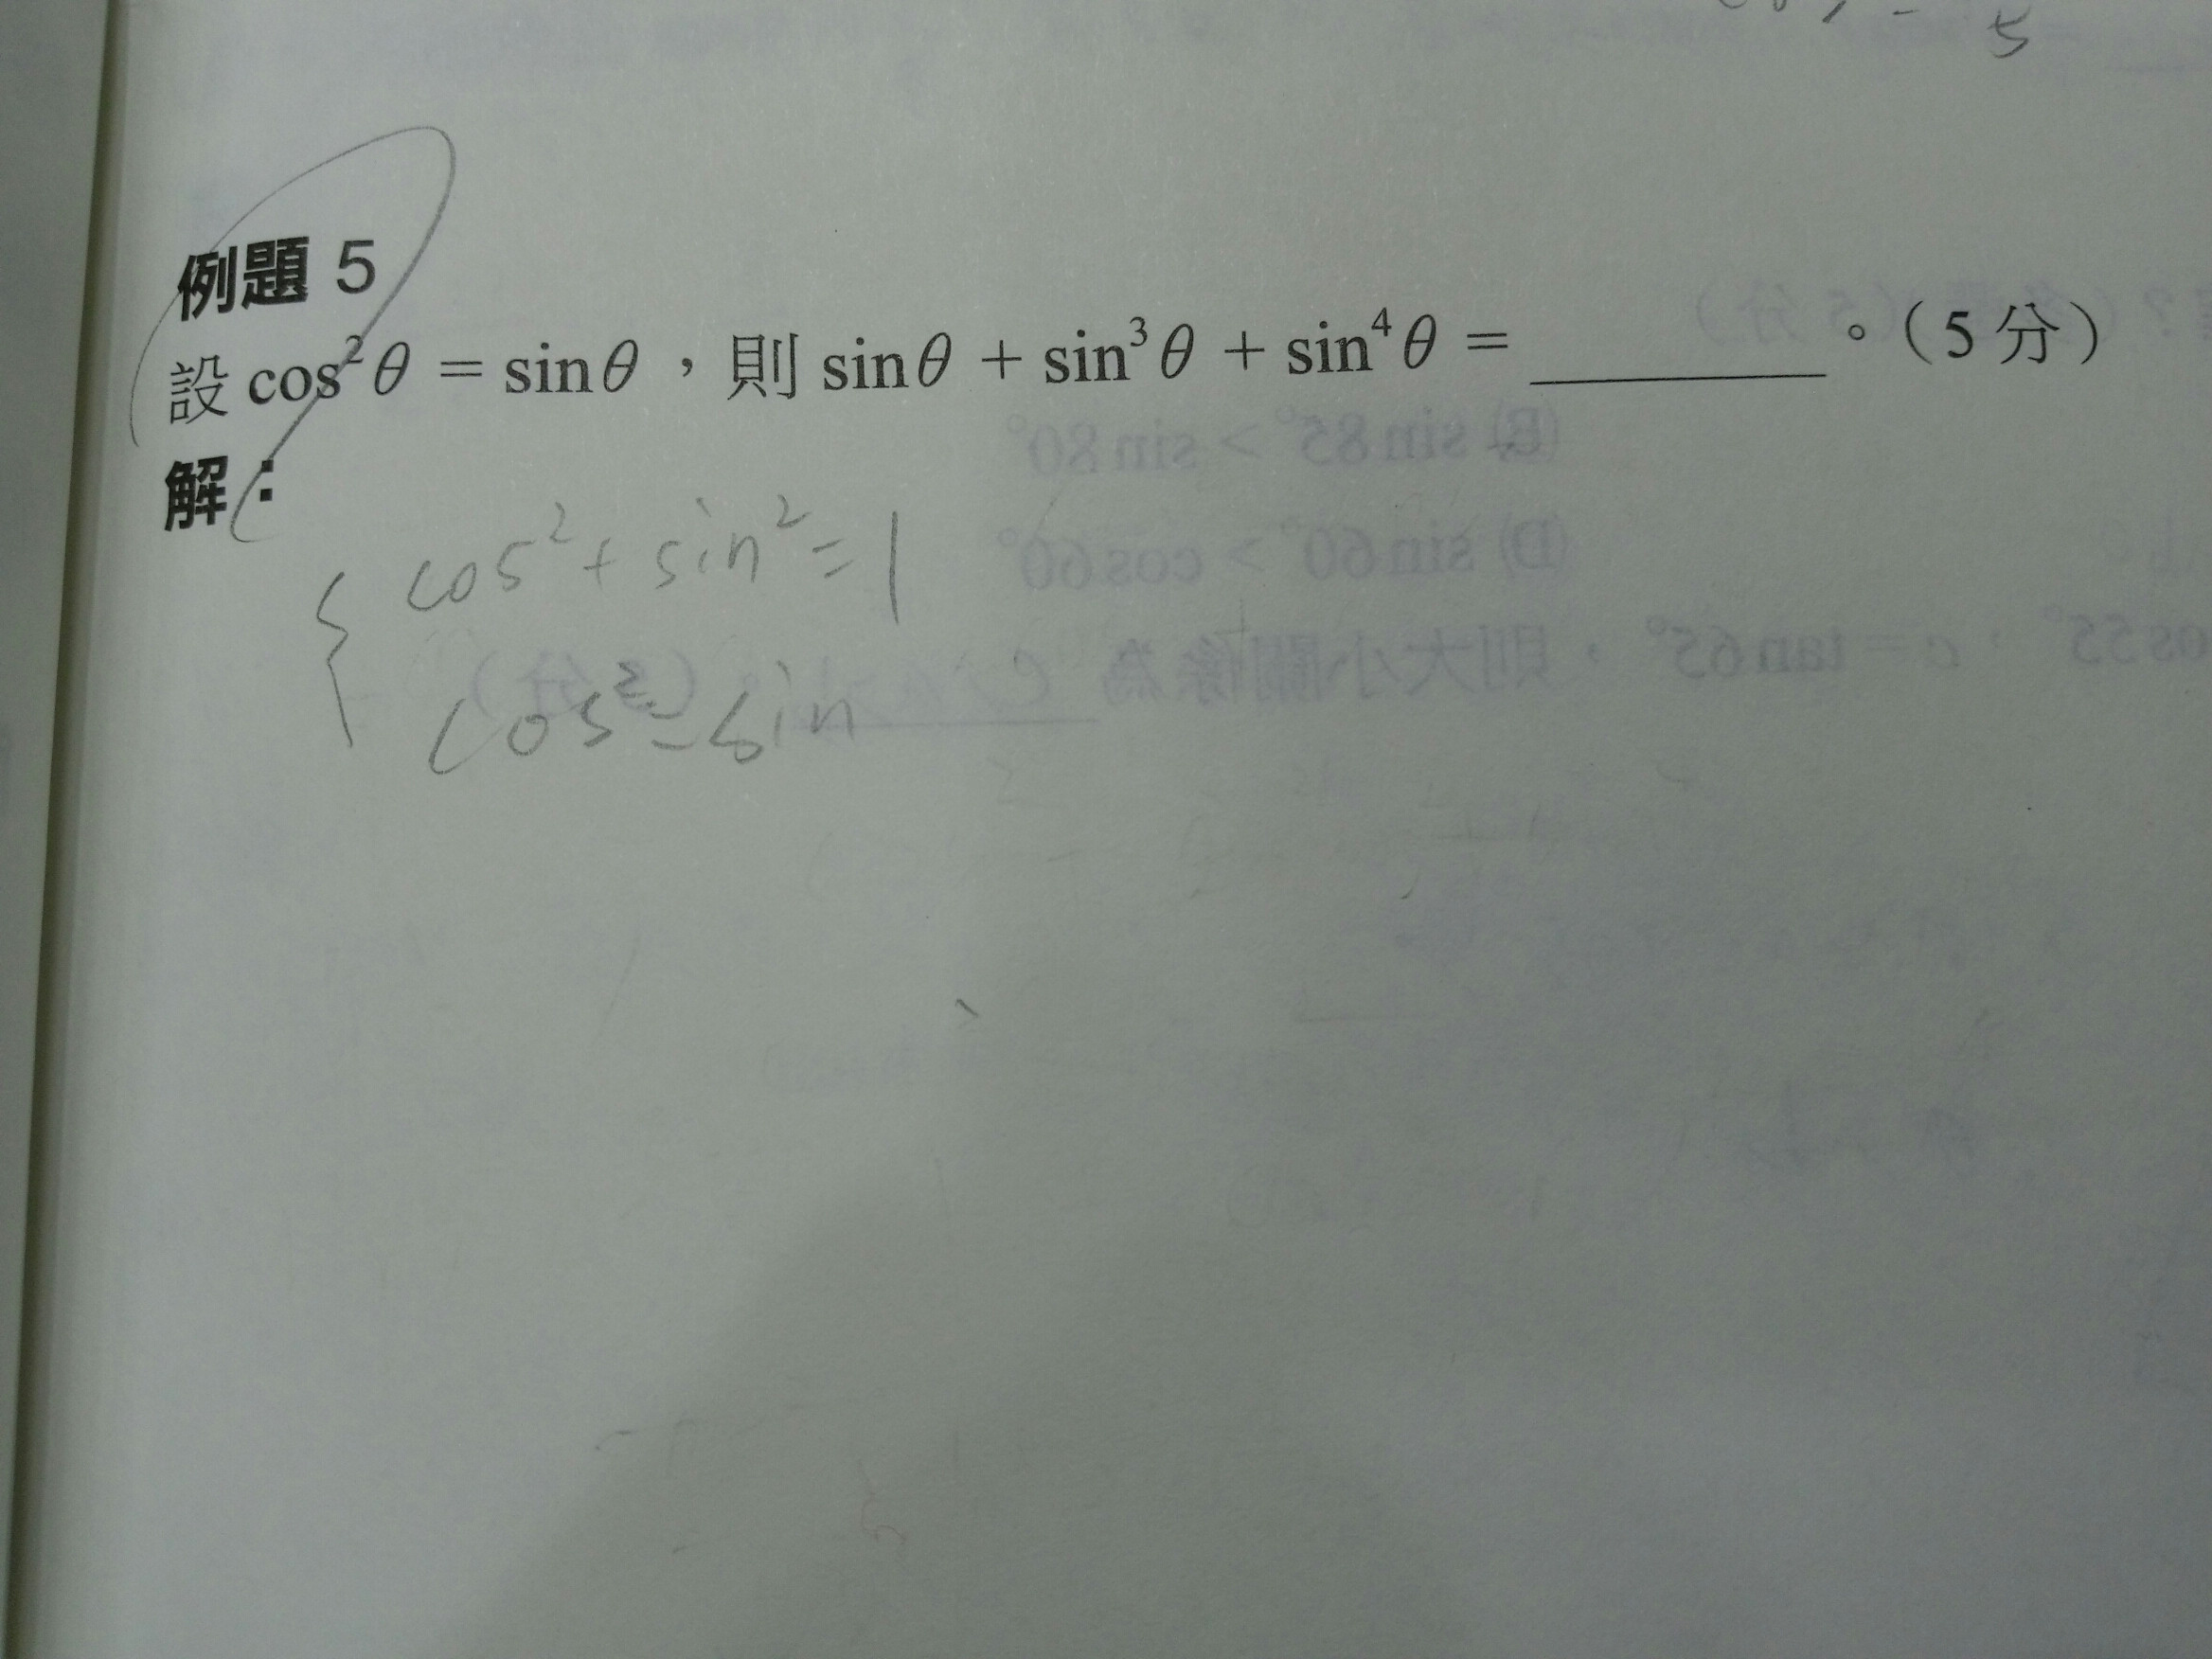 5
例題 5
設 cos²θ = sinθ，則 sinθ + sin³θ + sin⁴θ = ________。（5 分）
解：
cos² + sin² = 1
cos² = sin